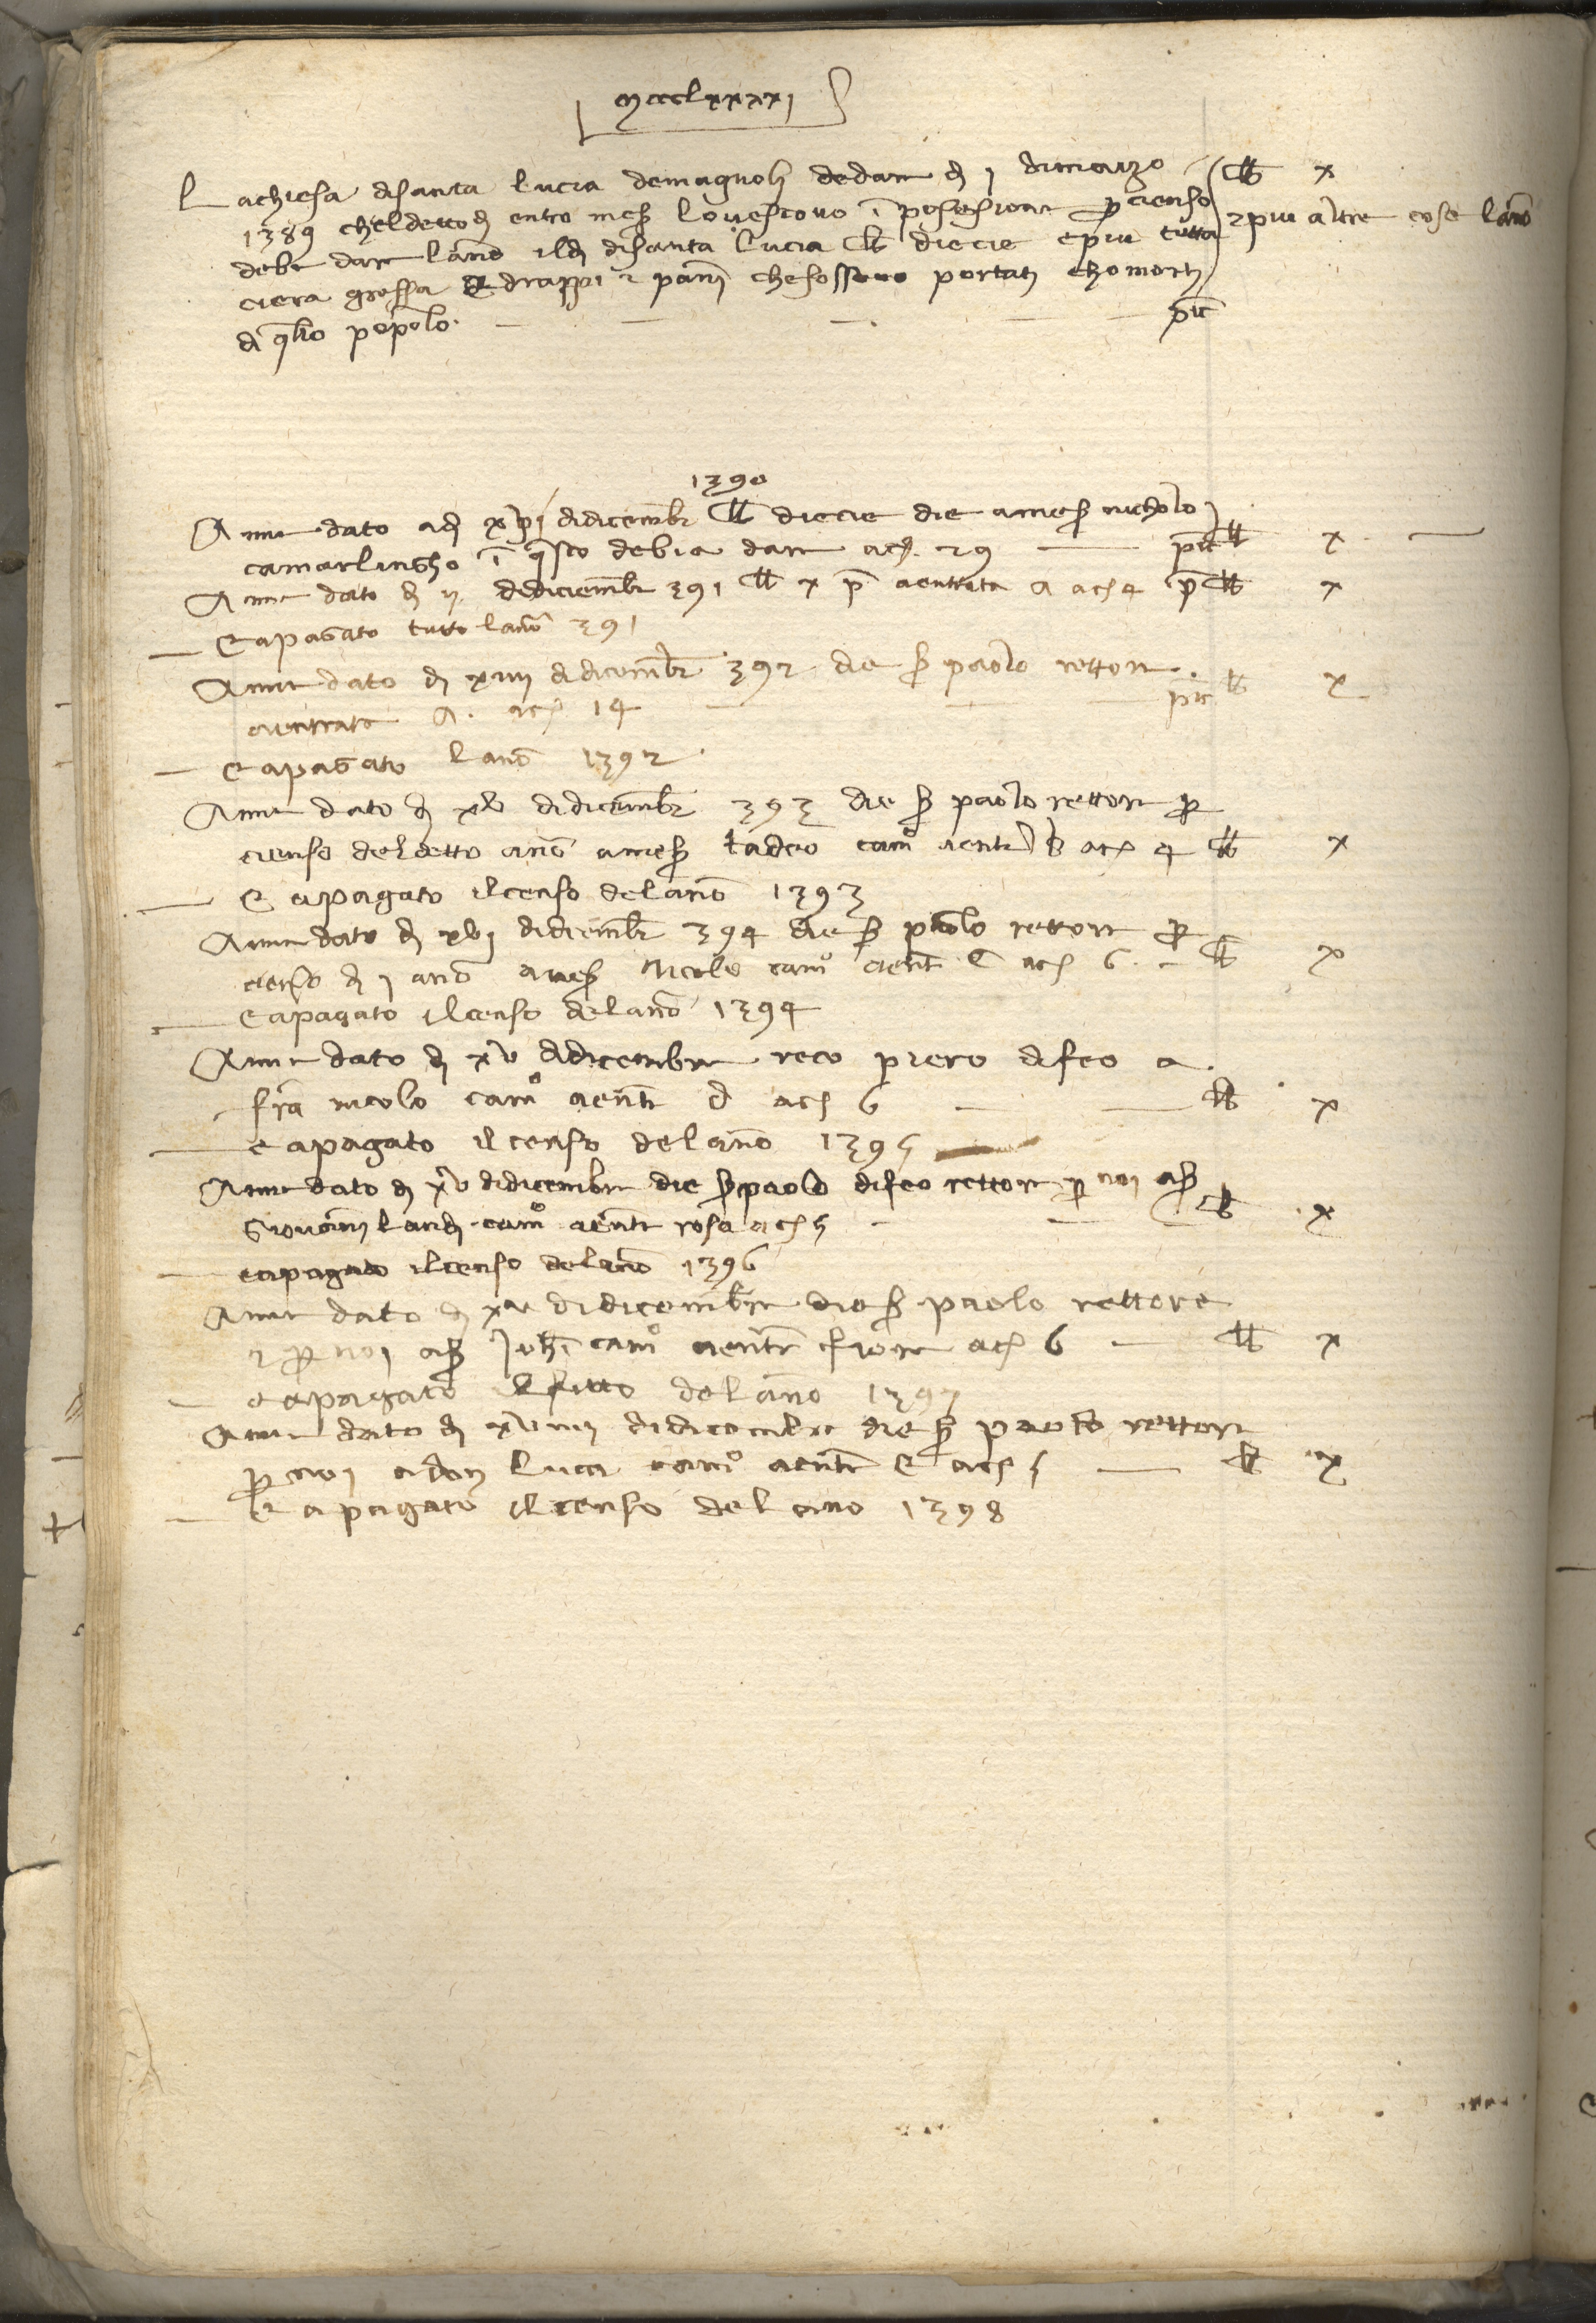 mccclxxxxj
La chiesa di santa lucia de magnoli de dare dì j di marzo lb x
1389 che l detto dì entro mes lo vescovo ī posesione p cienso 2 piu altre cose lano
debe dare lano il dì di santa lucia lb diecie e piu tutta
ciera grossa e drappi 2 panni che fossero portati cho morti
di q̄llo popolo. pīc
1390
Anne dato adj xvj di dicembr lb diecie die a mes nicholo
camarlingho ī q̄sto debia dare ac 29 pīc lb x
Anne dato dì ij di diciembr 391 lb x p̄ a entrata a ac 4 p̄ lb x
E a pagato tutto lano 391
Anne dato dì xiiij di dicembr 392 die s paolo rettore
a entrata A. ac 14 pīc lb x
E a pagato lano 1392
Anne dato dì xv di dicembr 393 die s paolo rettore p
cienso del detto ano a mes tadeo camo a entr b ac 4 lb x
E a pagato il censo del ano 1393
Anne dato dì xvj di dicembr 394 die s paolo rettore p
censo dì j ano a mes Nicolo camo a entr C ac 6 lb x
E a pagato il censo del ano 1394
Anne dato dì xv di dicembre reco piero di feo a
fra nicolo camo a entr d ac 6 lb x
e a pagato il censo del ano 1395
Anne dato dì xv di dicembre die s paolo di feo rettore p noi a s
Giovani landi camo a entr rosa ac 5 lb x
e a pagato il censo del ano 1396
Anne dato dì xv di dicembre die s paolo rettore
2 p noi a s Joh camo a entr fiore ac 6 lb x
e a pagato il fitto del ano 1397
Anne dato dì xviiij di dicembre die s paolo rettore
p noi a don luca camo a entr E ac 5 lb x
E a pagato il censo del ano 1398